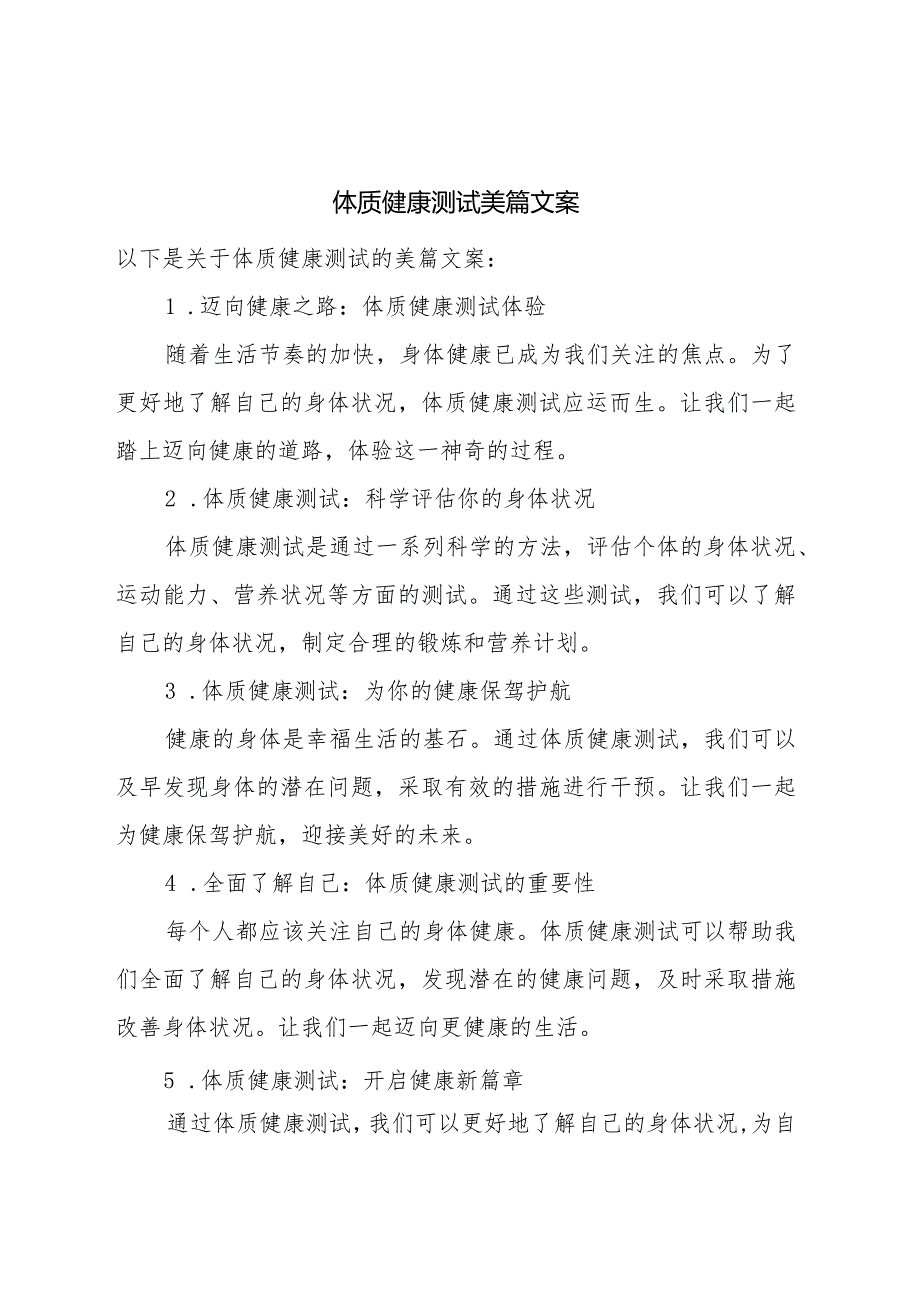 体质健康测试美篇文案
以下是关于体质健康测试的美篇文案：
1 .迈向健康之路：体质健康测试体验
随着生活节奏的加快，身体健康已成为我们关注的焦点。为了
更好地了解自己的身体状况，体质健康测试应运而生。让我们一起
踏上迈向健康的道路，体验这一神奇的过程。
2 .体质健康测试：科学评估你的身体状况
体质健康测试是通过一系列科学的方法，评估个体的身体状况、
运动能力、营养状况等方面的测试。通过这些测试，我们可以了解
自己的身体状况，制定合理的锻炼和营养计划。
3 .体质健康测试：为你的健康保驾护航
健康的身体是幸福生活的基石。通过体质健康测试，我们可以
及早发现身体的潜在问题，采取有效的措施进行干预。让我们一起
为健康保驾护航，迎接美好的未来。
4 .全面了解自己：体质健康测试的重要性
每个人都应该关注自己的身体健康。体质健康测试可以帮助我
们全面了解自己的身体状况，发现潜在的健康问题，及时采取措施
改善身体状况。让我们一起迈向更健康的生活。
5 .体质健康测试：开启健康新篇章
通过体质健康测试，我们可以更好地了解自己的身体状况,为自